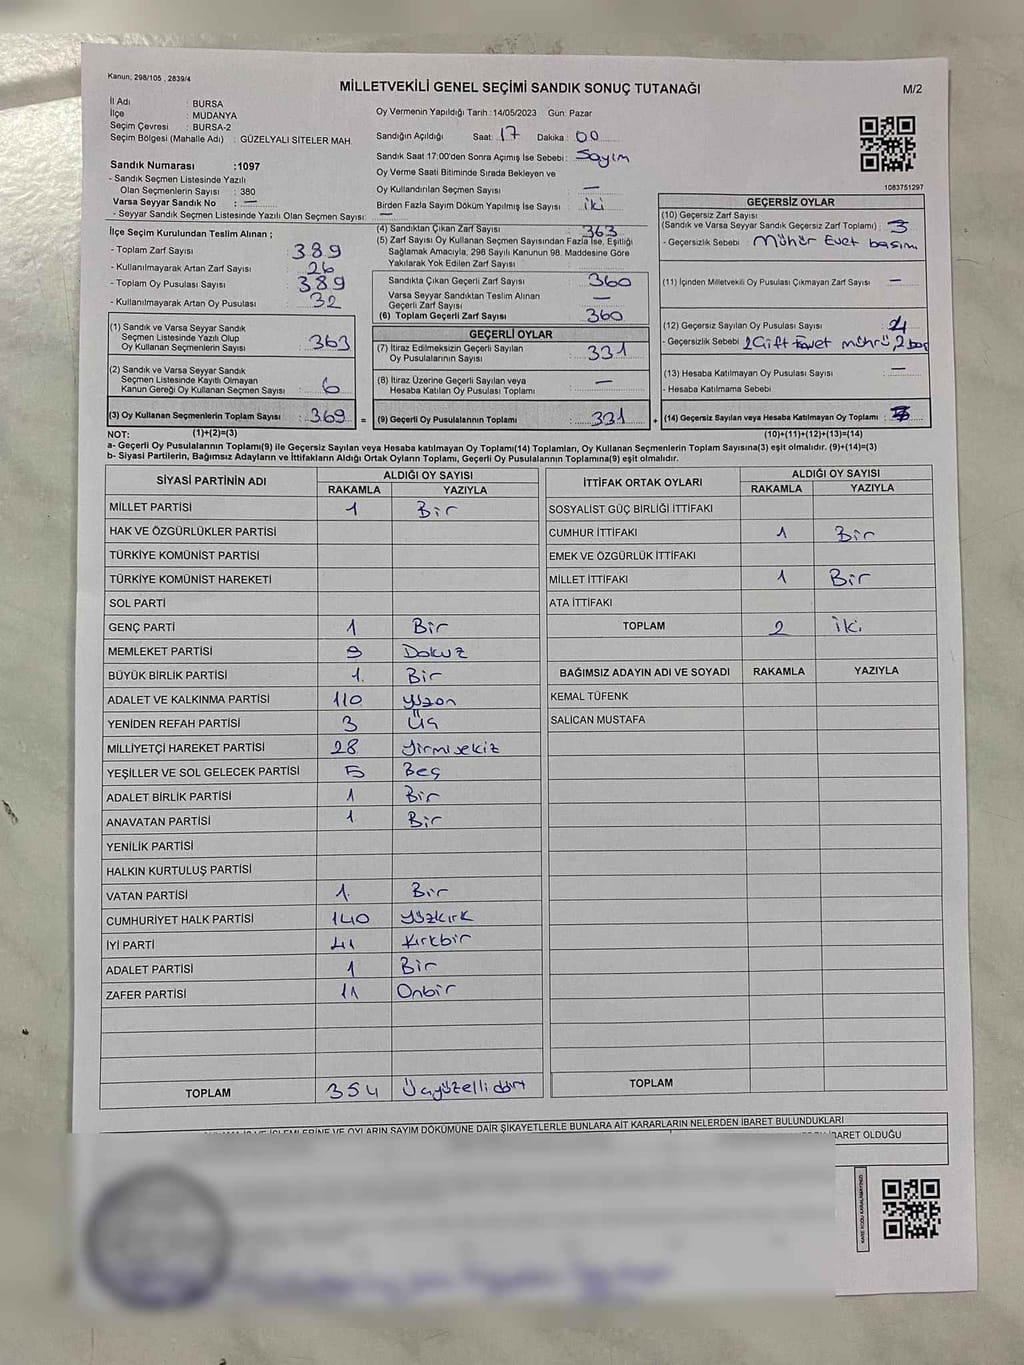 Kanun; 298/105 , 2839/4
MİLLETVEKİLİ GENEL SEÇİMİ SANDIK SONUÇ TUTANAĞI
M/2
İl Adı : BURSA
İlçe : MUDANYA
Seçim Çevresi : BURSA-2
Seçim Bölgesi (Mahalle Adı) : GÜZELYALI SİTELER MAH.
Oy Vermenin Yapıldığı Tarih : 14/05/2023 Gün: Pazar
Sandığın Açıldığı Saat: 17 Dakika : 00
Sandık Saat 17:00'den Sonra Açımış İse Sebebi : Sayım
Oy Verme Saati Bitiminde Sırada Bekleyen ve
Oy Kullandırılan Seçmen Sayısı : —
Birden Fazla Sayım Döküm Yapılmış İse Sayısı : iki
1083751297
Sandık Numarası :1097
- Sandık Seçmen Listesinde Yazılı
Olan Seçmenlerin Sayısı : 380
Varsa Seyyar Sandık No : —
- Seyyar Sandık Seçmen Listesinde Yazılı Olan Seçmen Sayısı: —
İlçe Seçim Kurulundan Teslim Alınan ;
- Toplam Zarf Sayısı : 389
- Kullanılmayarak Artan Zarf Sayısı : 26
- Toplam Oy Pusulası Sayısı : 389
- Kullanılmayarak Artan Oy Pusulası : 32
(1) Sandık ve Varsa Seyyar Sandık
Seçmen Listesinde Yazılı Olup
Oy Kullanan Seçmenlerin Sayısı : 363
(2) Sandık ve Varsa Seyyar Sandık
Seçmen Listesinde Kayıtlı Olmayan
Kanun Gereği Oy Kullanan Seçmen Sayısı : 6
(3) Oy Kullanan Seçmenlerin Toplam Sayısı : 369 =
(1)+(2)=(3)
(4) Sandıktan Çıkan Zarf Sayısı : 363
(5) Zarf Sayısı Oy Kullanan Seçmen Sayısından Fazla İse, Eşitliği
Sağlamak Amacıyla, 298 Sayılı Kanunun 98. Maddesine Göre
Yakılarak Yok Edilen Zarf Sayısı :
Sandıkta Çıkan Geçerli Zarf Sayısı : 360
Varsa Seyyar Sandıktan Teslim Alınan
Geçerli Zarf Sayısı : —
(6) Toplam Geçerli Zarf Sayısı : 360
GEÇERLİ OYLAR
(7) İtiraz Edilmeksizin Geçerli Sayılan
Oy Pusulalarının Sayısı : 331
(8) İtiraz Üzerine Geçerli Sayılan veya
Hesaba Katılan Oy Pusulası Toplamı : —
(9) Geçerli Oy Pusulalarının Toplamı : 331 +
GEÇERSİZ OYLAR
(10) Geçersiz Zarf Sayısı
(Sandık ve Varsa Seyyar Sandık Geçersiz Zarf Toplamı) : 3
- Geçersizlik Sebebi : Mühür Evet basımı
(11) İçinden Milletvekili Oy Pusulası Çıkmayan Zarf Sayısı : —
(12) Geçersiz Sayılan Oy Pusulası Sayısı : 4
- Geçersizlik Sebebi : 2 Çift Evet mührü, 2 boş
(13) Hesaba Katılmayan Oy Pusulası Sayısı : —
- Hesaba Katılmama Sebebi :
(14) Geçersiz Sayılan veya Hesaba Katılmayan Oy Toplamı :
(10)+(11)+(12)+(13)=(14)
NOT:
a- Geçerli Oy Pusulalarının Toplamı(9) ile Geçersiz Sayılan veya Hesaba katılmayan Oy Toplamı(14) Toplamları, Oy Kullanan Seçmenlerin Toplam Sayısına(3) eşit olmalıdır. (9)+(14)=(3)
b- Siyasi Partilerin, Bağımsız Adayların ve İttifakların Aldığı Ortak Oyların Toplamı, Geçerli Oy Pusulalarının Toplamına(9) eşit olmalıdır.
SİYASİ PARTİNİN ADI ALDIĞI OY SAYISI
RAKAMLA YAZIYLA
MİLLET PARTİSİ 1 Bir
HAK VE ÖZGÜRLÜKLER PARTİSİ
TÜRKİYE KOMÜNİST PARTİSİ
TÜRKİYE KOMÜNİST HAREKETİ
SOL PARTİ
GENÇ PARTİ 1 Bir
MEMLEKET PARTİSİ 9 Dokuz
BÜYÜK BİRLİK PARTİSİ 1. Bir
ADALET VE KALKINMA PARTİSİ 110 yüzon
YENİDEN REFAH PARTİSİ 3 Üç
MİLLİYETÇİ HAREKET PARTİSİ 28 yirmisekiz
YEŞİLLER VE SOL GELECEK PARTİSİ 5 Beş
ADALET BİRLİK PARTİSİ 1 Bir
ANAVATAN PARTİSİ 1 Bir
YENİLİK PARTİSİ
HALKIN KURTULUŞ PARTİSİ
VATAN PARTİSİ 1. Bir
CUMHURİYET HALK PARTİSİ 140 yüzkırk
İYİ PARTİ 41 Kırkbir
ADALET PARTİSİ 1 Bir
ZAFER PARTİSİ 11 Onbir
TOPLAM 354 Üçyüzellidört
İTTİFAK ORTAK OYLARI ALDIĞI OY SAYISI
RAKAMLA YAZIYLA
SOSYALİST GÜÇ BİRLİĞİ İTTİFAKI
CUMHUR İTTİFAKI 1 Bir
EMEK VE ÖZGÜRLÜK İTTİFAKI
MİLLET İTTİFAKI 1 Bir
ATA İTTİFAKI
TOPLAM 2 iki
BAĞIMSIZ ADAYIN ADI VE SOYADI RAKAMLA YAZIYLA
KEMAL TÜFENK
SALİCAN MUSTAFA
TOPLAM
VE OYLARIN SAYIM DÖKÜMÜNE DAİR ŞİKAYETLERLE BUNLARA AİT KARARLARIN NELERDEN İBARET BULUNDUKLARI
İBARET OLDUĞU
KARE KODU KARALAMAYINIZ!